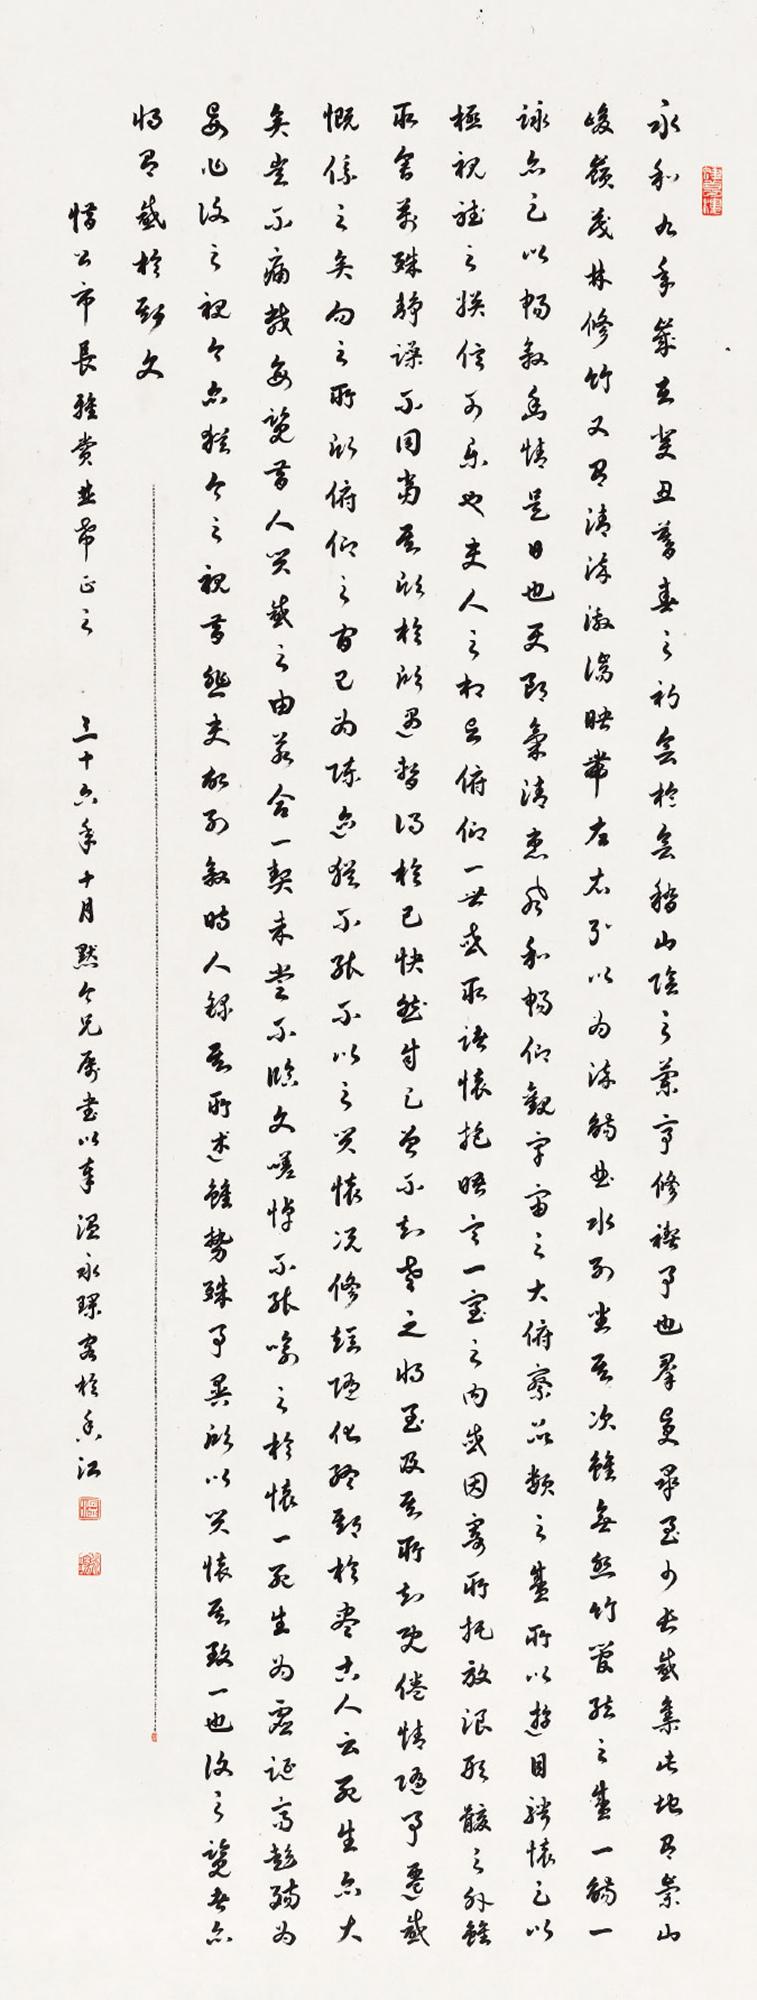 永和九年歲在癸丑暮春之初會於會稽山陰之蘭亭修禊事也羣賢畢至少長咸集此地有崇山
峻嶺茂林修竹又有清流激湍映帶左右引以為流觴曲水列坐其次雖無絲竹管弦之盛一觴一
詠亦足以暢敘幽情是日也天朗氣清惠風和暢仰觀宇宙之大俯察品類之盛所以遊目騁懷足以
極視聽之娛信可樂也夫人之相與俯仰一世或取諸懷抱晤言一室之內或因寄所託放浪形骸之外雖
取舍萬殊靜躁不同當其欣於所遇暫得於己快然自足曾不知老之將至及其所知既倦情隨事遷感
慨係之矣向之所欣俯仰之間已為陳迹猶不能不以之興懷況修短隨化終期於盡古人云死生亦大
矣豈不痛哉每覽昔人興感之由若合一契未嘗不臨文嗟悼不能喻之於懷一死生為虛誕齊彭殤為
妄作後之視今亦猶今之視昔悲夫故列敘時人錄其所述雖勢殊事異所以興懷其致一也後之覽者亦
將有感於斯文
惜公市長雅賞並希正之 三十六年十月默今兄属書以奉 温永琛客於香江